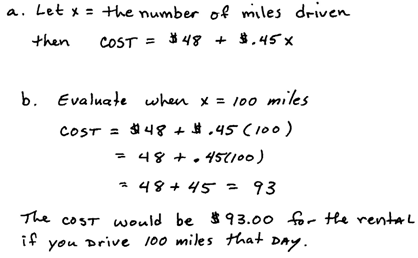 a. Let x = the number of miles driven
then COST = $48 + $.45x
b. Evaluate when x = 100 miles
COST = $48 + $.45(100)
= 48 + .45(100)
= 48 + 45 = 93
The COST would be $93.00 for the rental
if you Drive 100 miles that DAY.